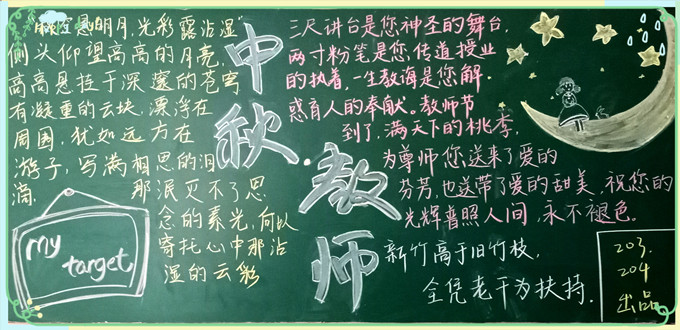 空悬明月,光彩露沾湿
侧头仰望高高的月亮,
高高悬挂于深邃的苍穹
有凝重的云块,漂浮在
周围,犹如远方在
游子,写满相思的泪
滴。 那泯灭不了思
念的素光,何以
寄托心中那沾
湿的云彩
my
target
中秋·教师
三尺讲台是您神圣的舞台,
两寸粉笔是您,传道授业
的执着,一生教诲是您解
惑育人的奉献。教师节
到了,满天下的桃李,
为尊师您,送来了爱的
芬芳,也送带了爱的甜美,祝您的
光辉普照人间,永不褪色。
新竹高于旧竹枝,
全凭老干为扶持.
203.
204
出品